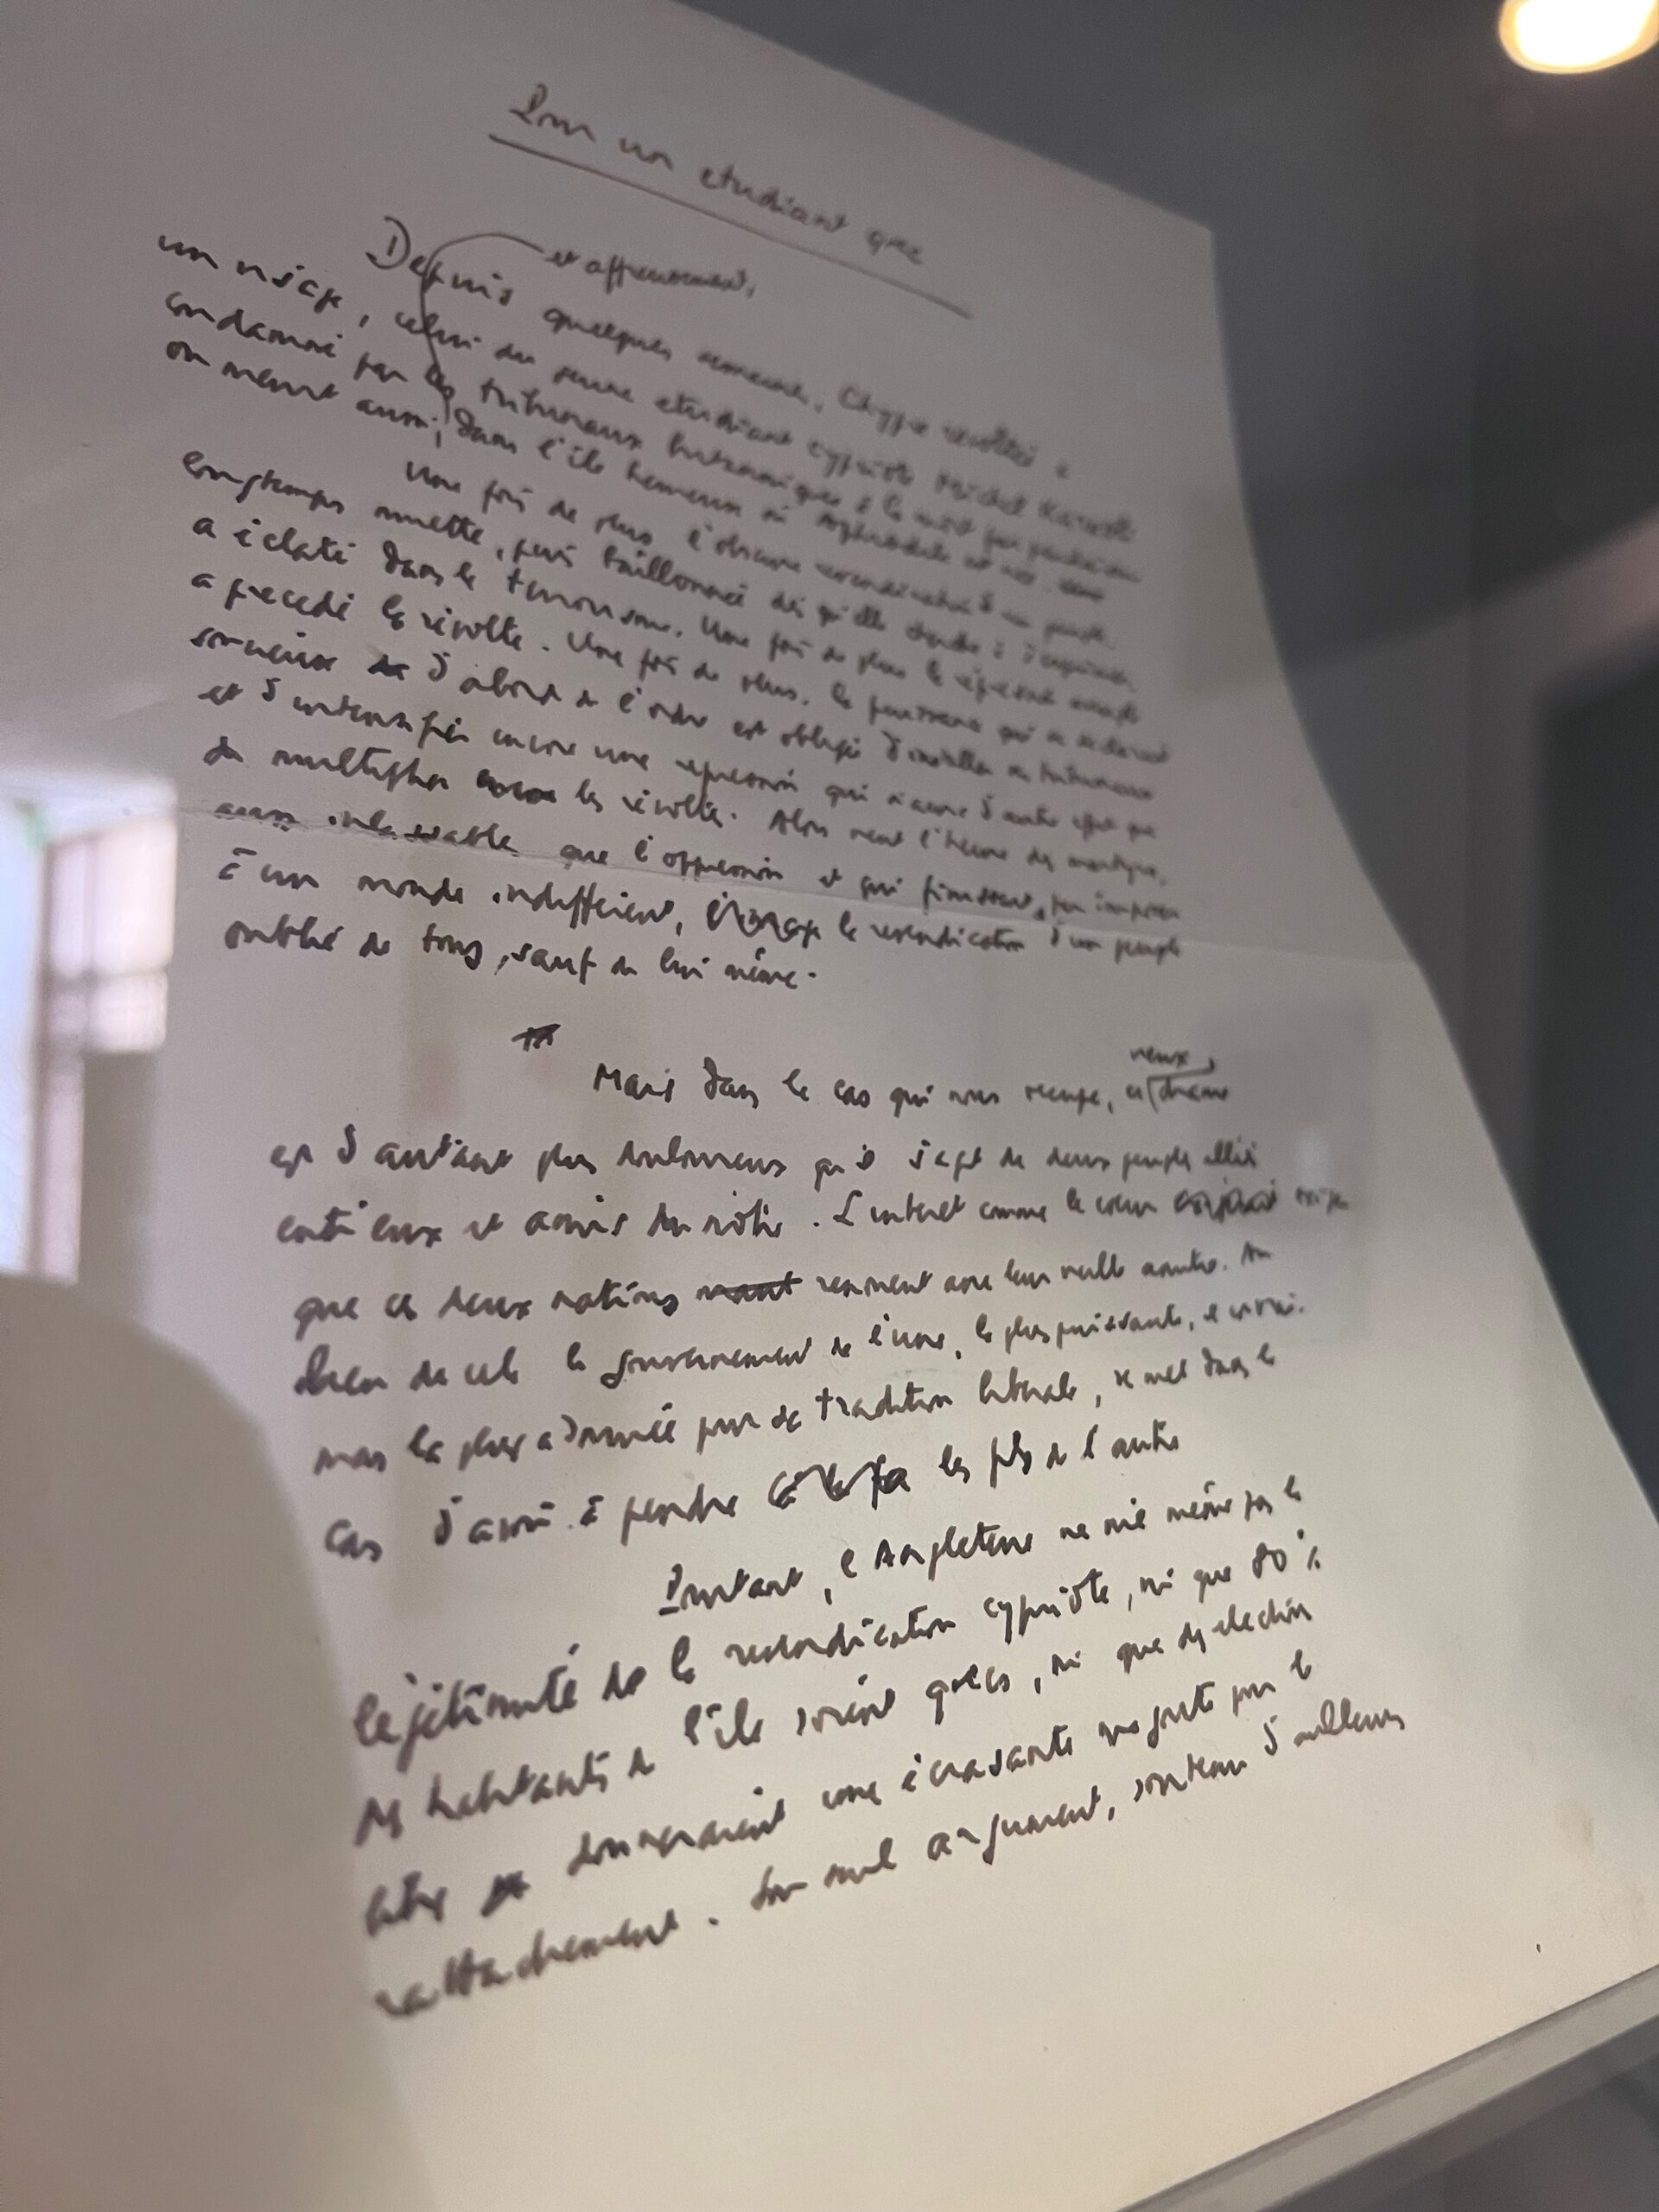 Pour un etudiant grec
et affreusement,
Depuis quelques semaines, Chypre révoltée a
un visage, celui du jeune etudiant cypriote Michel Karaoli
condamné par les tribunaux britanniques à la mort par pendaison
on meurt aussi, dans l'île heureuse où Aphrodite est née.
Une fois de plus l'obscure revendication d'un peuple
longtemps muette, puis baillonnée dès qu'elle cherche à s'exprimer,
a éclaté dans le terrorisme. Une fois de plus la répression aveugle
a precedé la révolte. Une fois de plus, la puissance qui se
soucieux d'abord de l'ordre est obligé d'installer ses tribunaux
et d'intensifier encore une repression qui n'aura d'autre effet que
de multiplier les révoltés. Alors vient l'heure des martyrs,
aussi inlassable que l'oppression et qui finissent par imposer
à un monde indifférent, la revendication d'un peuple
oublié de tous, sauf de lui même.
vieux
Mais dans le cas qui nous occupe, ce drame
est d'autant plus douloureux qu'il s'agit de deux peuples alliés
entre eux et amis du nôtre. L'interet comme le coeur exige
que ces deux nations renouent avec leur vieille amitié. Au
lieu de cela le gouvernement de l'une, la plus puissante, il est vrai.
mais la plus admirée pour sa tradition liberale, se met dans le
cas d'avoir à pendre les fils de l'autre
Pourtant, l'Angleterre ne nie même pas la
légitimité de la revendication cypriote, ni que 80 %
des habitants de l'île soient grecs, ni que des elections
libres donneraient une écrasante majorité pour le
rattachement. Son seul argument, soutenu d'ailleurs